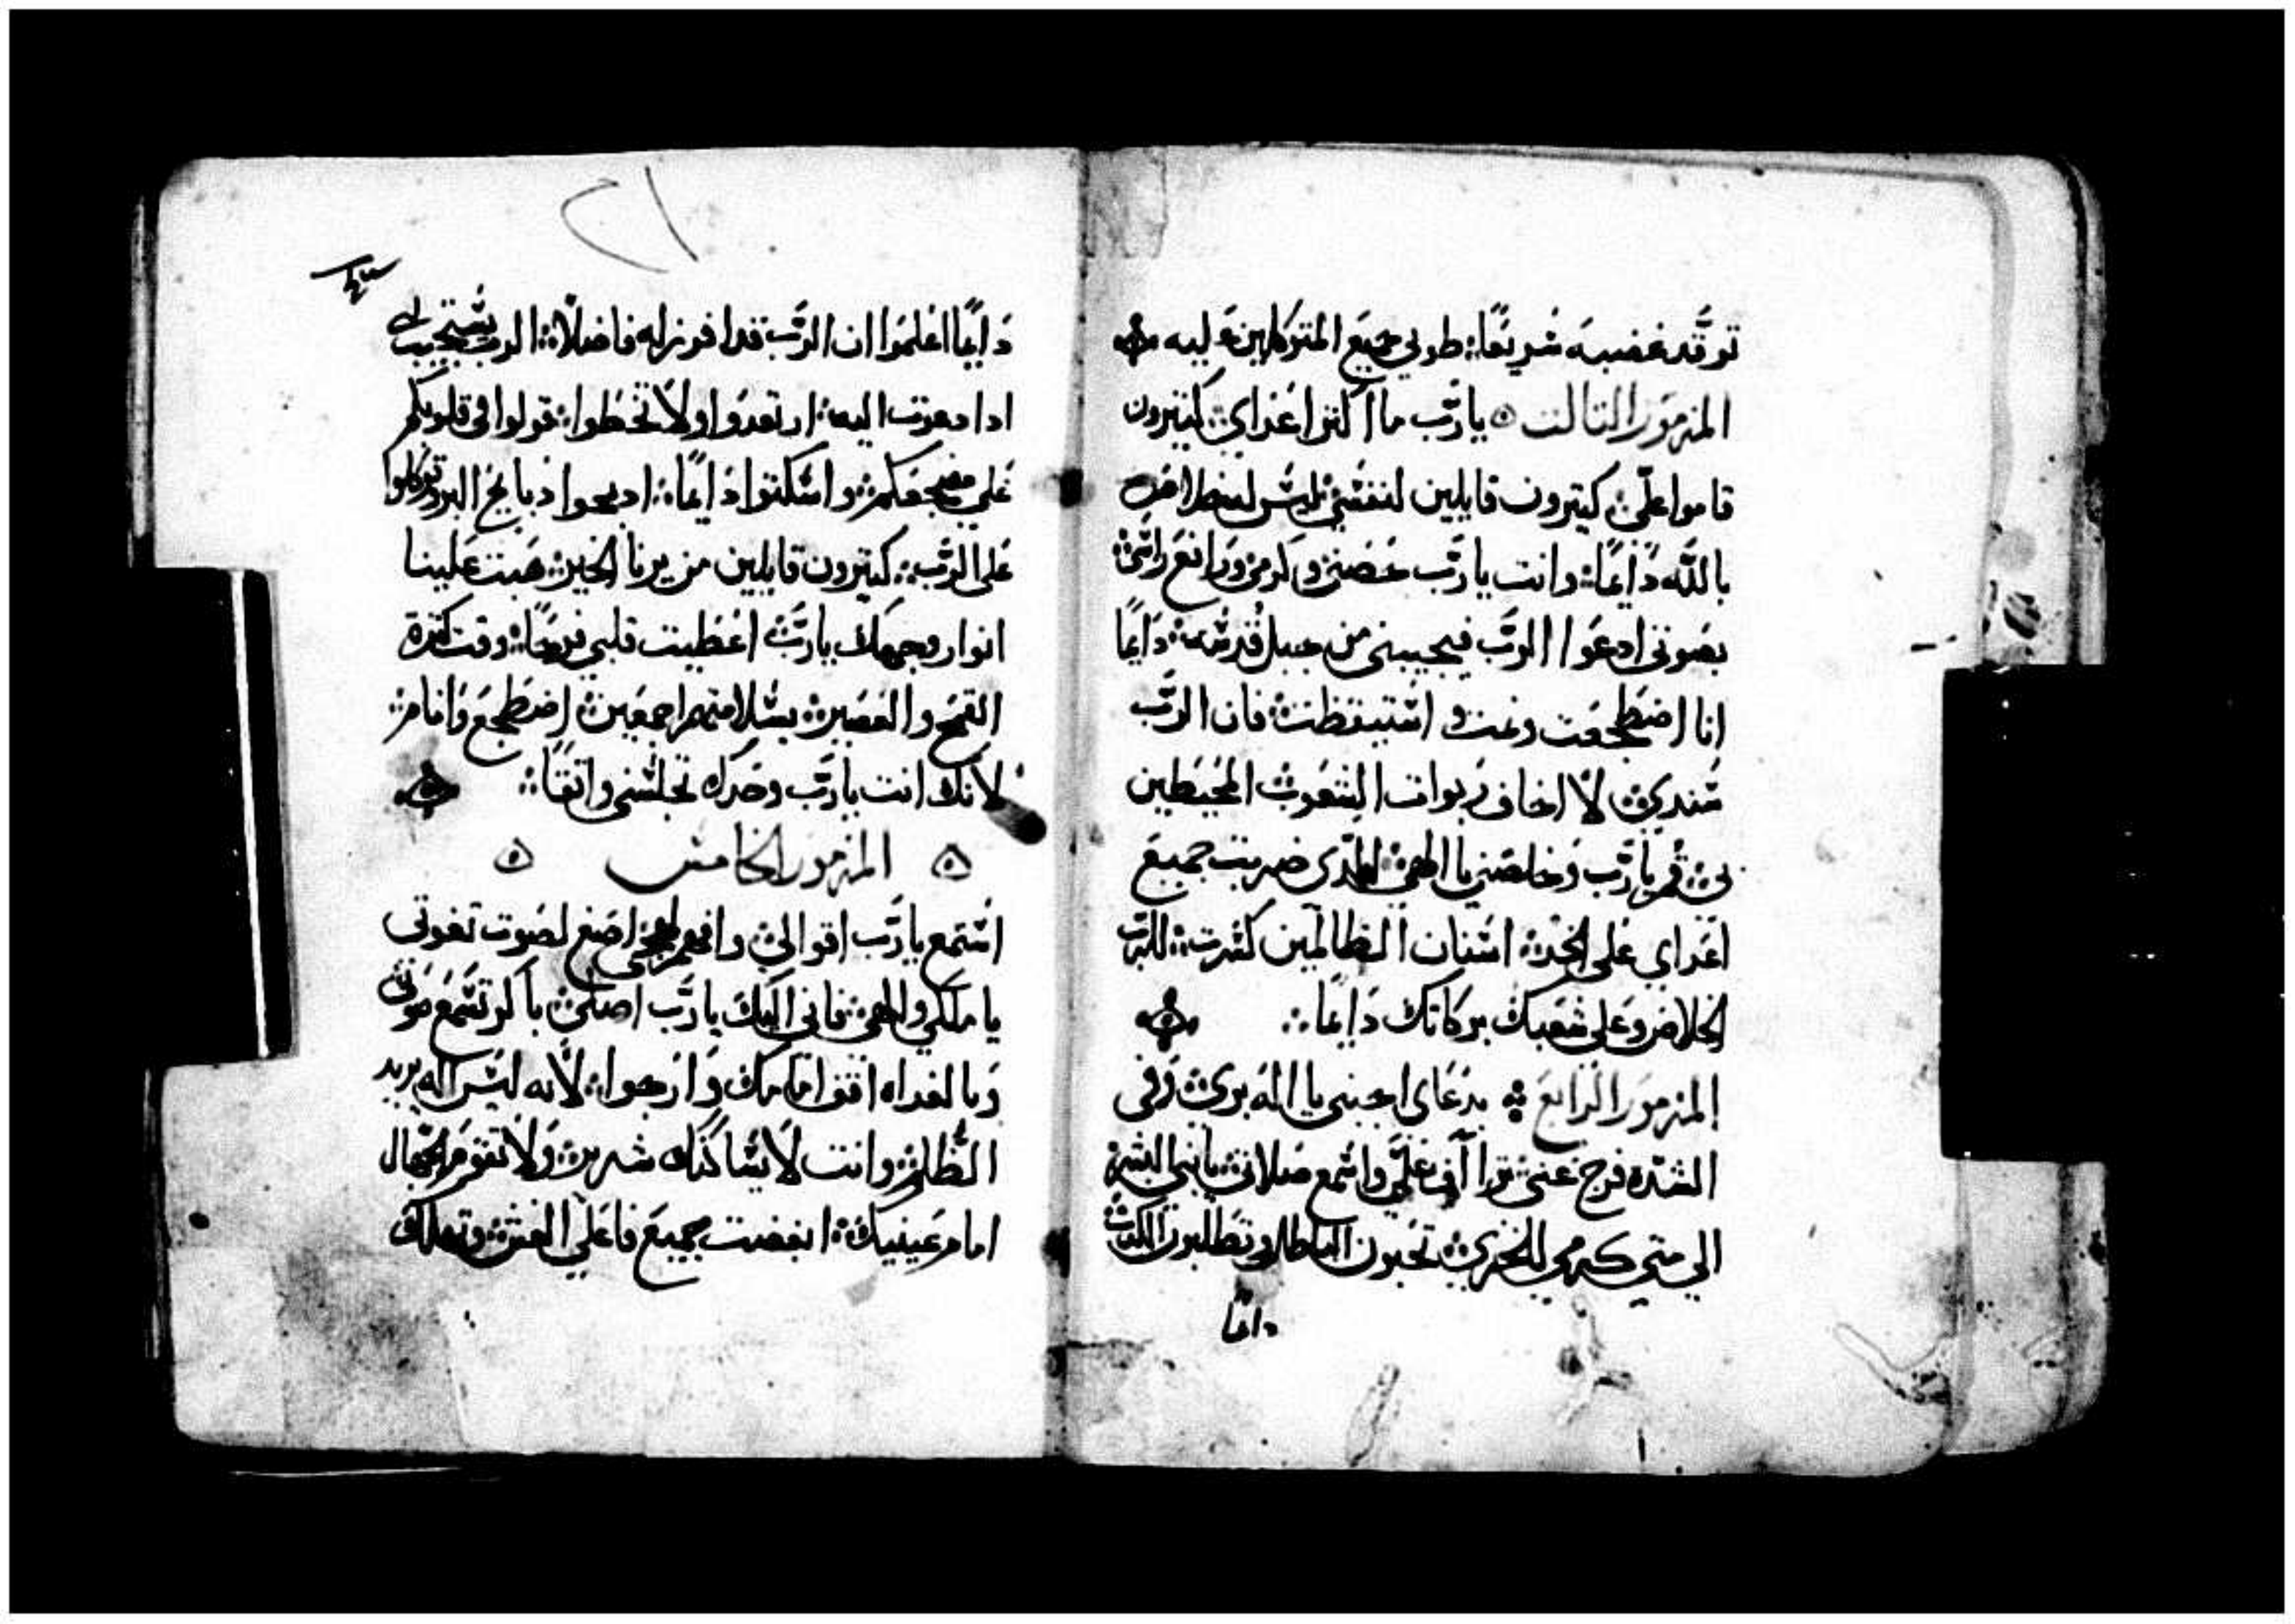 توقد غضبه سَريعًا ܀ طوبي جميع المتوكلين عليه
المزمور التالت ۞ يا رَّب ما اكتر اعداي ܀ كتيرون
قاموا عليّ ܀ كتيرون قايلين لنفسي ܀ ليس لهخلاص
بالله دَايمًا ܀ وانت يا رَّب عضني وكرمي ورافع راسي ܀
بصوتي ادعوا الرَّب فيجيبني من جبل قدسه ܀ دَايمًا
انا اضطجعت ونمت واستيقظت ܀ فان الرَّب
سندي ܀ لا اخاف ربوات الشعوب المحيطين
بي ܀ قم يا رَّب وخلصني يا الهي ܀ الذي ضربت جميع
اعداي على الخد ܀ اسنان الظالمين كسرت ܀ للرَّب
الخلاص وعلى شعبك بركاتك دَايمًا ܀
المزمور الرابع ܀ بدعاي اجبني يا اله بري ܀ وفي
الشدّه فرج عني ܀ تراآف عليَّ واسمع صلاتي ܀ يا بني البشر ܀
الي متي كرمي للخزي ܀ تحبون الباطل وتطلبون الكدب ܀
دايما
دَايمًا اعلموا ان الرَّب قد افرز له فاضلًا ܀ الرب يستجيب لي
ادا دعوت اليه ܀ ارتعدوا ولا تخطوا ܀ قولوا في قلوبكم
علي مضجعكم ܀ واسكتوا دَايمًا ܀ ادبحوا دبايح البر وتوكلوا
على الرَّب ܀ كتيرون قايلين من يرنا الخير ܀ هبت علينا
انوار وجهك يا رَّب ܀ اعطيت قلبي فرحًا ܀ وقت كترة
القمح والعصير ܀ بسلامتهم اجمعين ܀ اضطجع وَانام ܀
لانك انت يا رَّب وحدك تجلسني واتقًا ܀
المزمور الخامس
استمع يا رَّب اقوالي ܀ وافهم لهجي اصغ لصوت تغوتي
يا ملكي والهي ܀ فاني اليك يا رَّب اصلي ܀ باكر تسمع صوتي
وبالغداه اقف امامك وَارجوا ܀ لانه ليس اله يريد
الظلم ܀ وانت لا يساكنك شرير ܀ وَلا تقوم الجهال
امام عينيك ܀ ابغضت جميع فاعلي الغش ܀ وتهلك